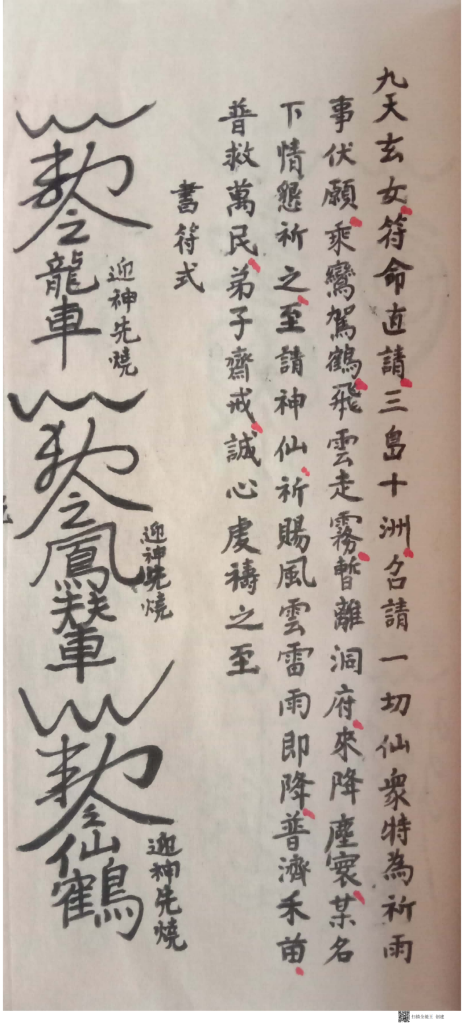 九天玄女符命直請三島十洲召請一切仙衆特為祈雨
事伏願乘鸞駕鶴飛雲走霧暫離洞府來降塵寰某名
下情懇祈之至請神仙祈賜風雲雷雨即降普濟禾苗
普救萬民弟子齋戒誠心虔禱之至
書符式
敕令之龍車
迎神先燒
敕令之鳳輦車
迎神先燒
敕令之仙鶴
迎神先燒